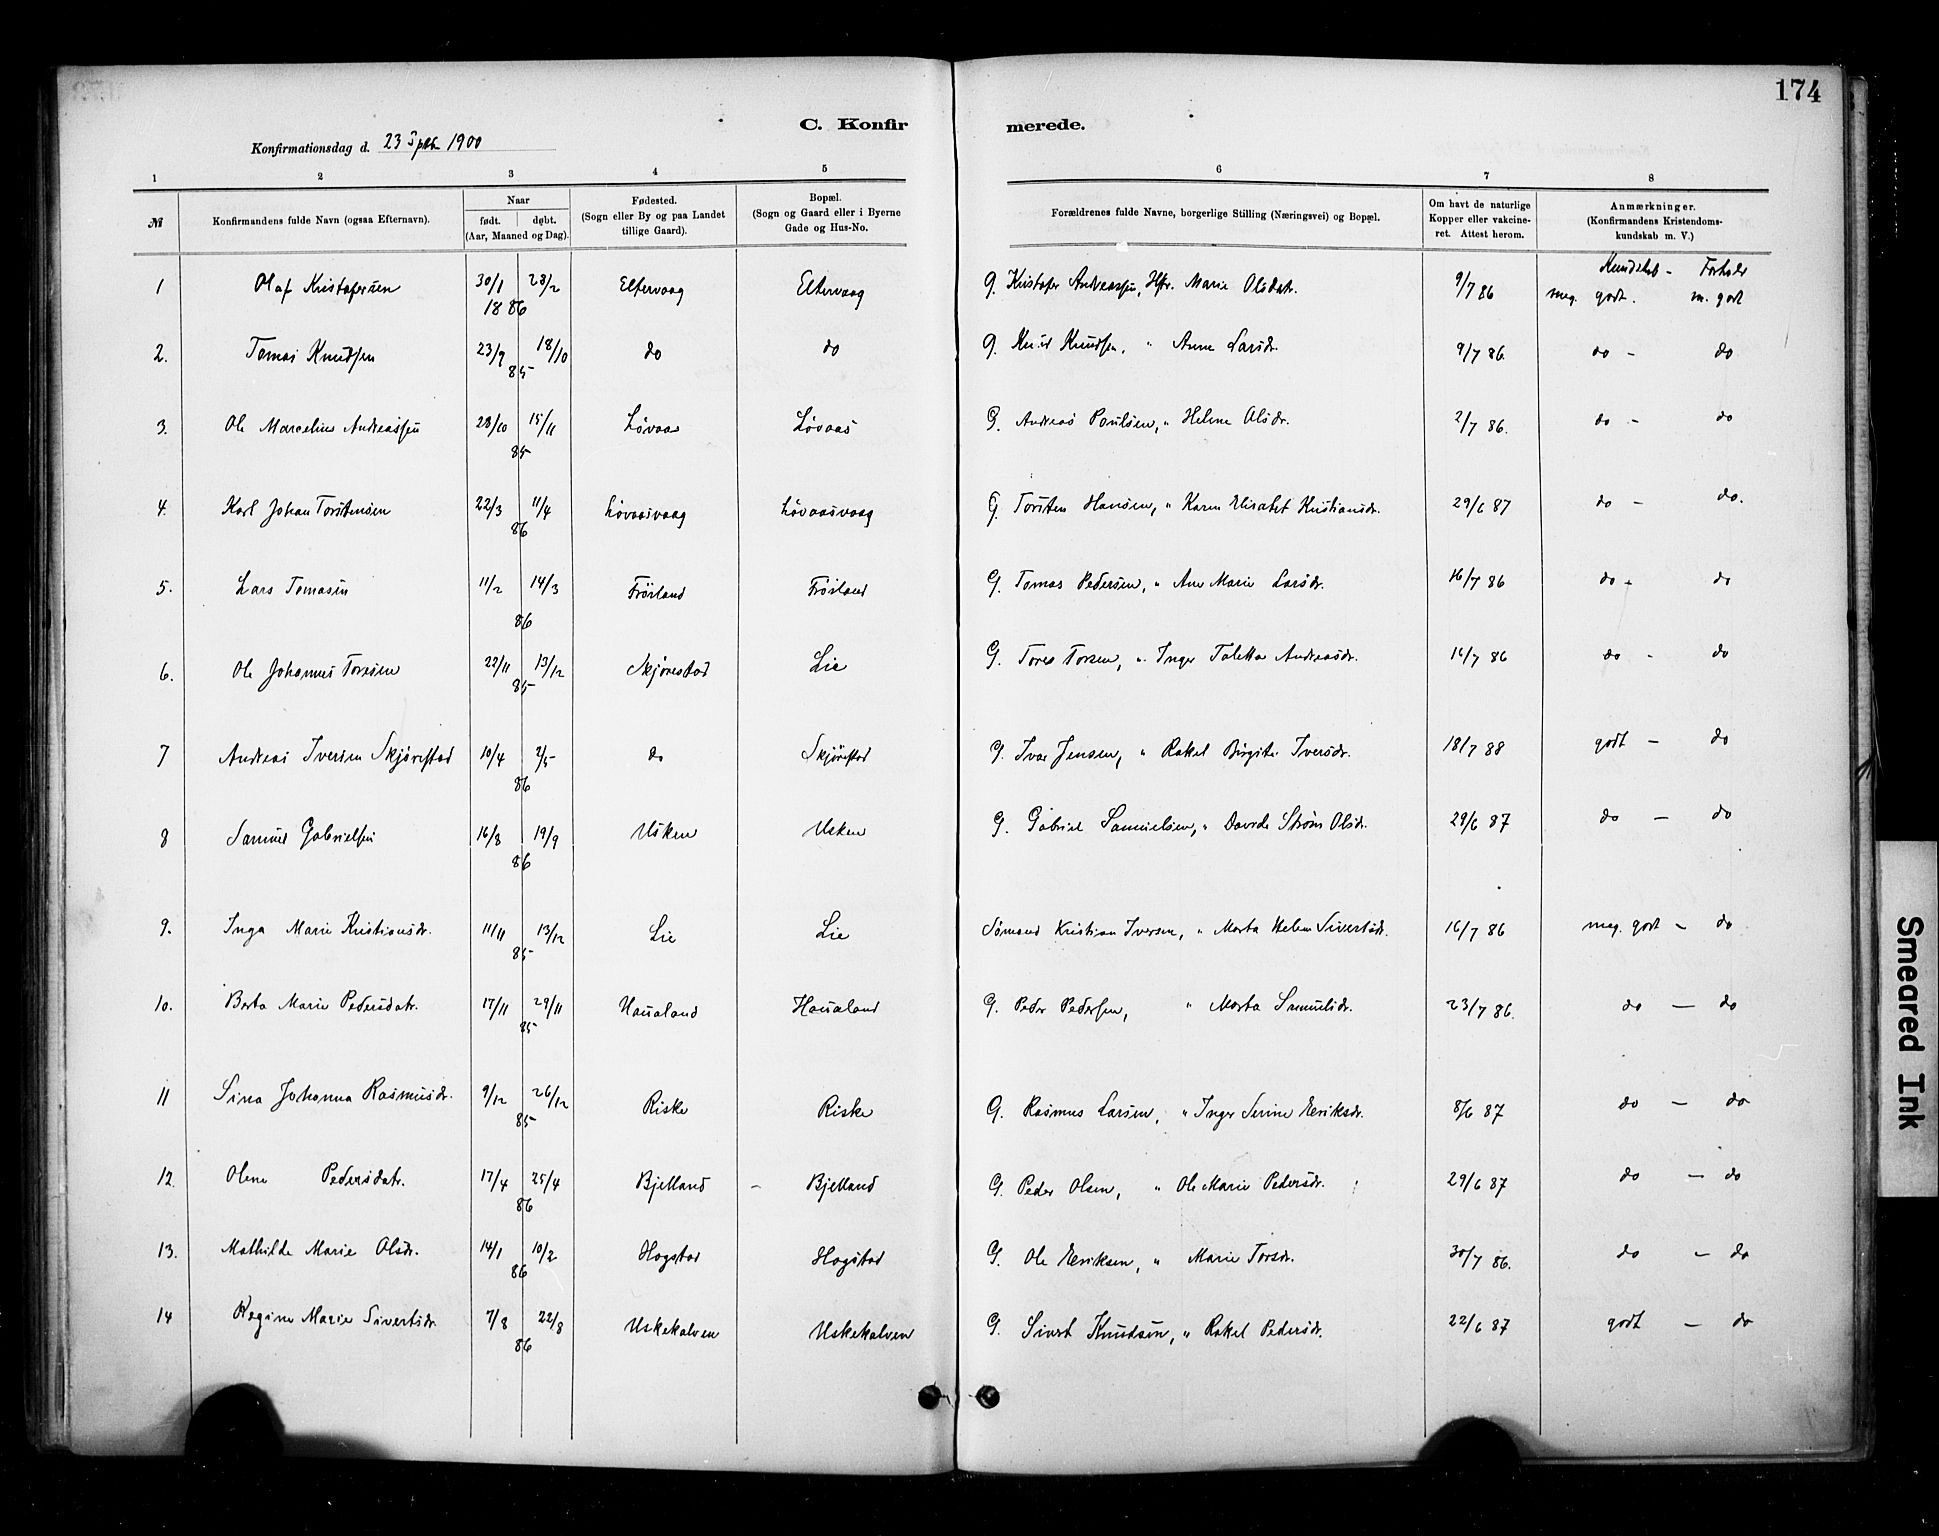 174
C. Konfirmerede.
Konfirmationsdag d. 23 Septbr 1900
1 2 3 4 5 6 7 8
№ Konfirmandens fulde Navn (ogsaa Efternavn). Naar født. døbt. (Aar, Maaned og Dag). Fødested. (Sogn eller By og paa Landet tillige Gaard). Bopæl. (Sogn og Gaard eller i Byerne Gade og Hus-No. Forældrenes fulde Navne, borgerlige Stilling (Næringsvei) og Bopæl. Om havt de naturlige Kopper eller vakcineret. Attest herom. Anmærkninger. (Konfirmandens Kristendomskundskab m. V.)
1 Olaf Kristofersen 30/1 28/2 1886 Eltervaag Eltervaag G. Kristofer Andreassen, Hstr. Marie Olsdatr. 9/7 86 Kundskab - Forhold meg. godt. m. godt
2. Tomas Knudsen 23/9 18/10 85 do do G. Knud Knudsen, " Anne Larsdr. 9/7 86. do - do
3. Ole Marcelius Andreassen 28/10 15/11 85 Løvaas Løvaas G. Andreas Poulsen, " Helene Olsdr. 2/7 86. do - do
4. Karl Johan Torstensen 22/3 11/4 86 Løvaasvaag Løvaasvaag G. Torsten Hansen, " Karen Elisabet Kristiansdr. 29/6 87 do - do.
5. Lars Tomasen 11/2 14/3 86 Frøiland Frøiland G. Tomas Pedersen, " Ane Marie Larsdr. 16/7 86 do - do
6. Ole Johannes Toresen 22/11 13/12 85 Skjørestad Lie G. Tores Torsen, " Inger Taletta Andreasdr. 16/7 86 do - do
7 Andreas Iversen Skjørestad 10/4 2/5 86 do Skjørestad G. Ivar Jensen, " Rakel Birgite Iversdr. 18/7 88 godt - do
8 Samuel Gabrielsen 16/8 19/9 86 Usken Usken G. Gabriel Samuelsen, " Davida Strøm Olsdr. 29/6 87 do - do
9. Inga Marie Kristiansdr. 11/11 13/12 85 Lie Lie Sømand Kristian Iversen, " Marta Helene Sivertsdr. 16/7 86 meg. godt - do
10. Berta Marie Pedersdatr. 17/11 29/11 85 Haualand Haualand G. Peder Pedersen, " Marta Samuelsdr. 23/7 86. do - do
11 Sina Johanna Rasmusdr. 9/12 26/12 85 Riske Riske G. Rasmus Larsen, " Inger Serine Eriksdr. 8/6 87 do - do
12. Olene Pedersdatr. 17/4 25/4 86 Bjelland - Bjelland G. Peder Olsen, " Ole Marie Pedersdr. 29/6 87 do - do
13. Mathilde Marie Olsdr. 14/1 10/2 86 Hogstad Hogstad G. Ole Eriksen, " Marie Torsdr. 30/7 86. do - do
14 Regine Marie Sivertsdr. 7/8 22/8 86 Uskekalven Uskekalven G. Sivert Knudsen, " Rakel Pedersdr. 22/6 87 godt - do
Smeared Ink